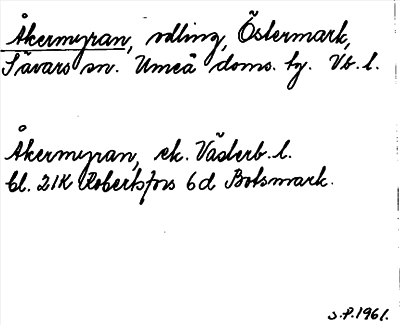 Åkermyran, odling, Östermark,
Sävars sn. Umeå doms. hg. Vb. l.
Åkermyran, ek. Västerb. l.
bl. 21K Robertsfors 6d Botsmark.
S.P. 1961.